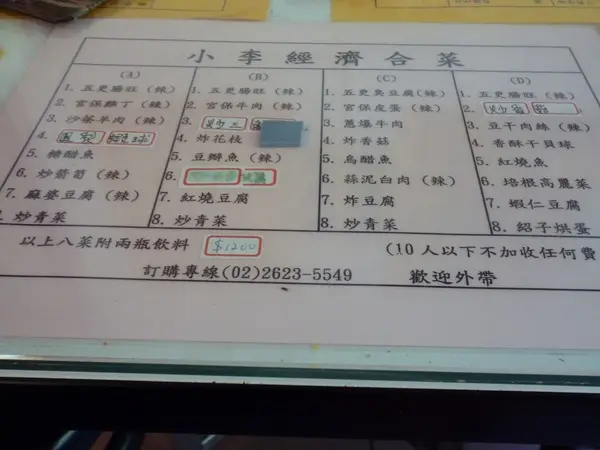 小李經濟合菜
(A) (B) (C) (D)
1. 五更腸旺(辣) 1. 五更腸旺(辣) 1. 五更臭豆腐(辣) 1. 五更腸旺(辣)
2. 宮保雞丁(辣) 2. 宮保牛肉(辣) 2. 宮保皮蛋(辣) 2.
3. 沙茶羊肉(辣) 3. 炒三 3. 蔥爆牛肉 3. 豆干肉絲(辣)
4. 球 4. 炸花枝 4. 炸香菇 4. 香酥干貝球
5. 糖醋魚 5. 豆瓣魚(辣) 5. 烏醋魚 5. 紅燒魚
6. 炒箭筍(辣) 6. 6. 蒜泥白肉(辣) 6. 培根高麗菜
7. 麻婆豆腐(辣) 7. 紅燒豆腐 7. 炸豆腐 7. 蝦仁豆腐
8. 炒青菜 8. 炒青菜 8. 炒青菜 8. 紹子烘蛋
以上八菜附兩瓶飲料 $1200 (10人以下不加收任何費
訂購專線(02)2623-5549 歡迎外帶